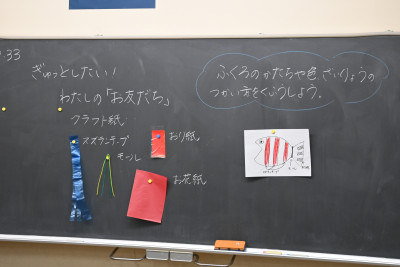 .33
ぎゅっとしたい!
わたしの「お友だち」
クラフト紙
スズランテープ
モール
おり紙
お花紙
ふくろのかたちや色、ざいりょうの
つかい方をくふうしよう。